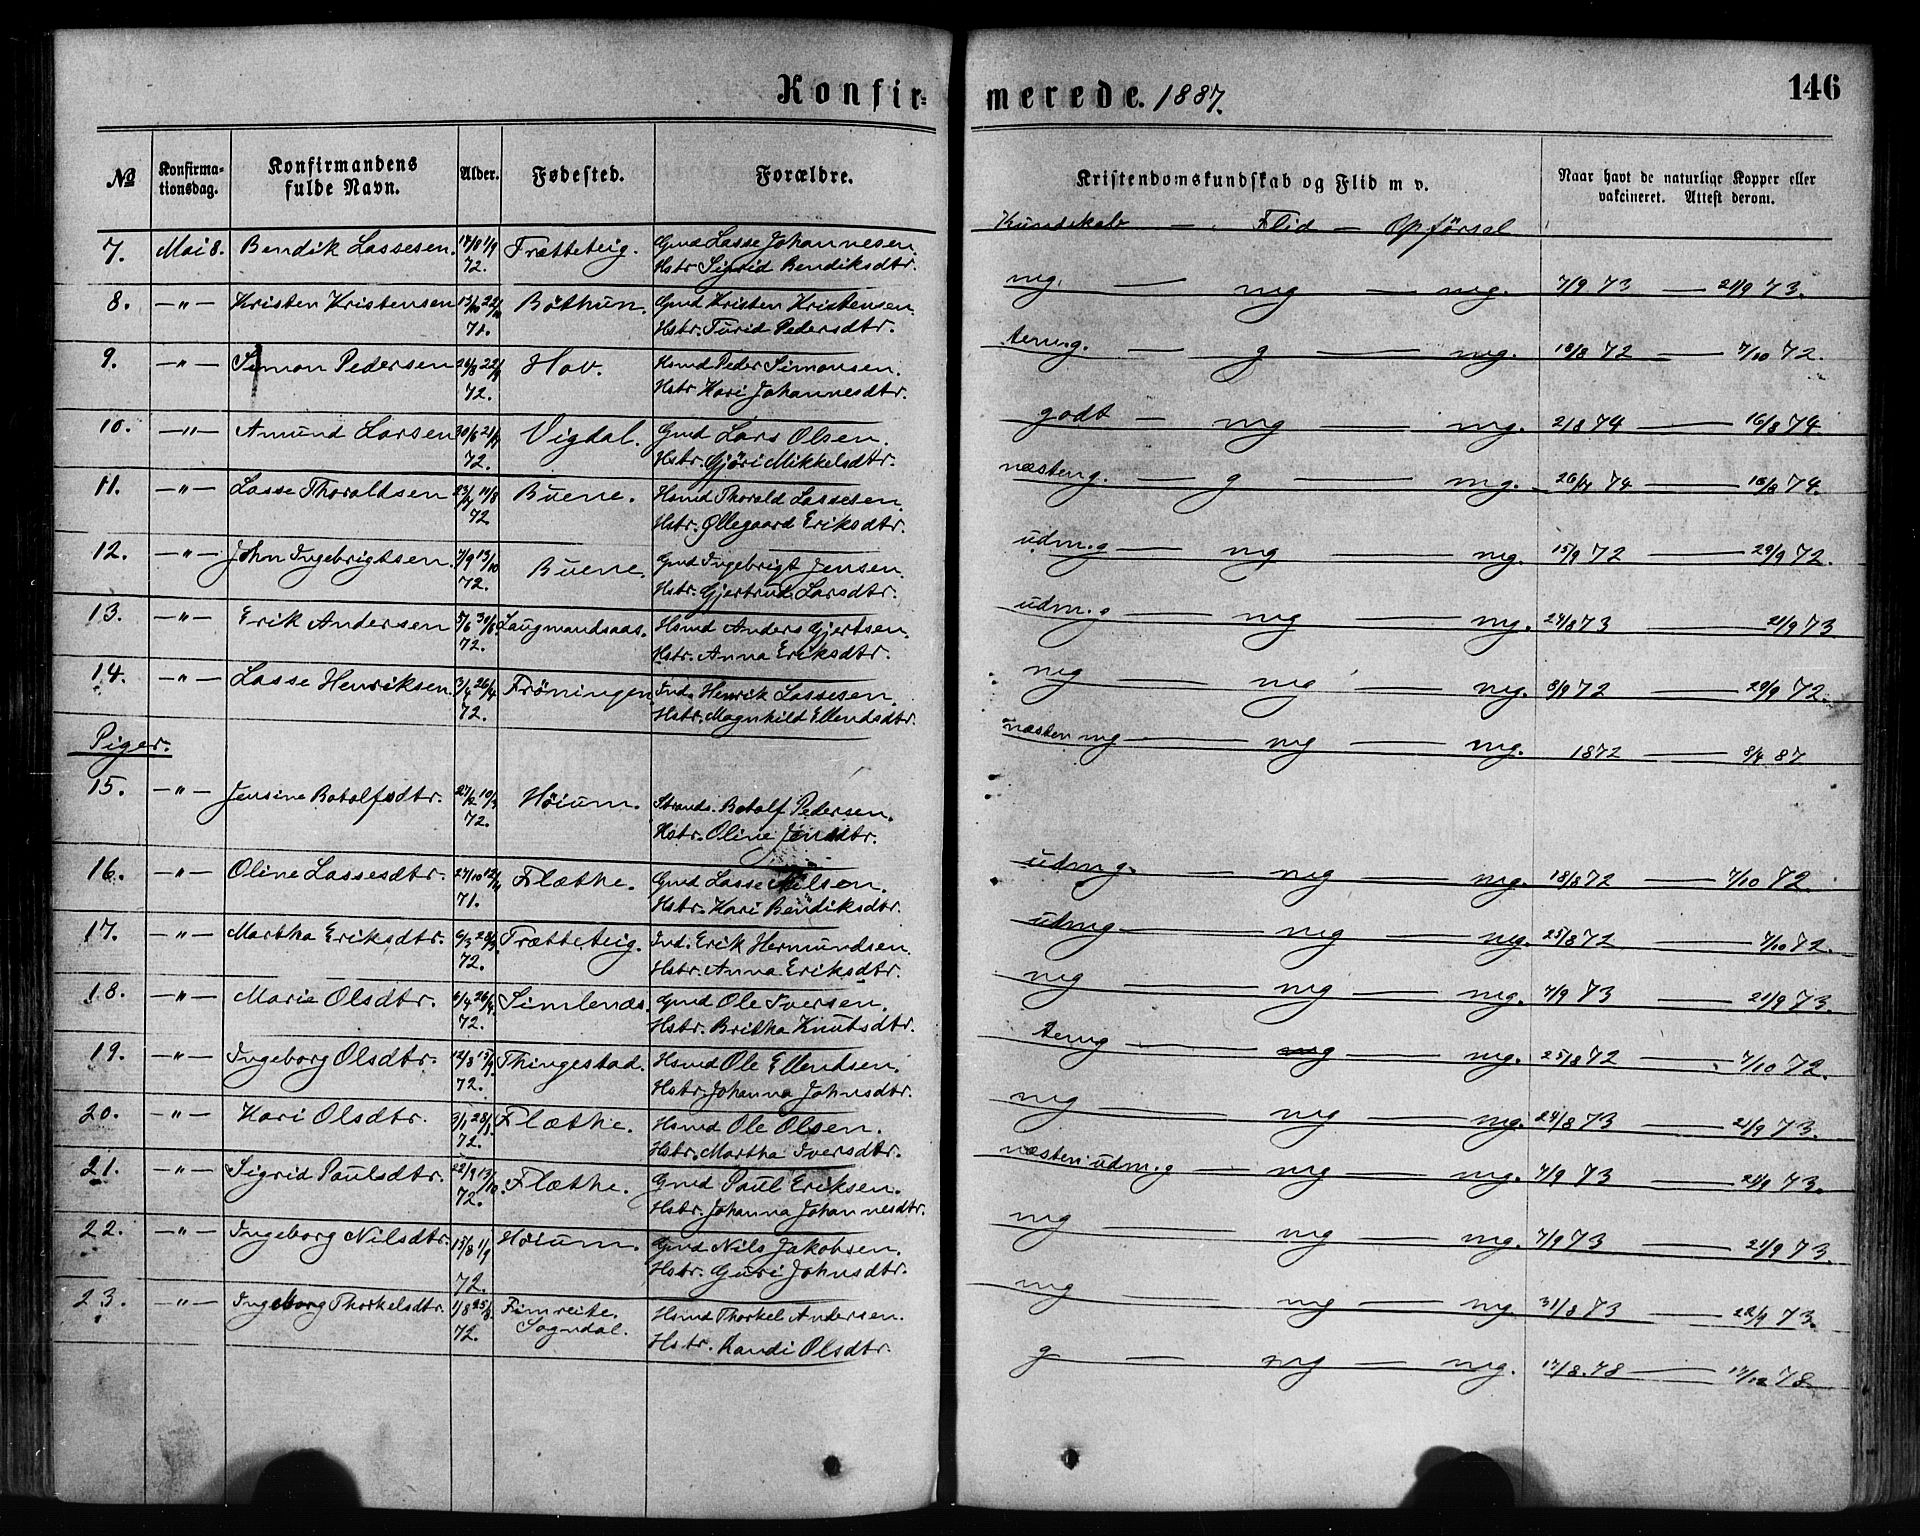 Konfirmerede. 1887.
146
No
Konfirmationsdag.
Konfirmandens fulde Navn.
Alder.
Fødested.
Forældre.
Kristendomskundskab og Flid m v.
Naar havt de naturlige Kopper eller vakcineret. Attest derom.
Kundskab — Flid — Opførsel
7. Mai 8. Bendik Lassesen. 72. Trætteteig. Gmd Lasse Johannesen.
Hstr. Sigrid Bendiksdtr.
mg. — mg — mg. 7/9 73 — 21/9 73.
8. —"— Kristen Kristensen 71. Böthun. Gmd Kristen Kristensen.
Hstr. Turid Pedersdtr.
temg. — g — mg. 18/8 72 — 7/10 72.
9. —"— Simon Pedersen 72. Hov. Hsmd Peder Simonsen.
Hstr Kari Johannesdtr.
godt — mg — mg. 2/8 74 — 16/8 74
10. —"— Amund Larsen 72. Vigdal. Gmd Lars Olsen.
Hstr. Gjöri Mikkelsdtr.
næsten g. — g — mg. 26/7 74 — 16/8 74.
11. —"— Lasse Thoraldsen 72. Buene. Hsmd Thorald Lassesen.
Hstr. Øllegaard Eriksdtr.
udm.g — mg — mg. 15/9 72 — 29/9 72.
12. —"— John Ingebrigtsen. 7/9 13/10 72. Buene. Gmd Ingebrigt Jensen.
Hstr. Gjertrud Larsdtr.
udm.g — mg — mg. 24/8 73 — 21/9 73
13. —"— Erik Andersen 72. Laugmandsaas. Hsmd Anders Gjertsen.
Hstr. Anna Eriksdtr.
mg — mg — mg. 8/9 72 — 29/9 72.
14. —"— Lasse Henriksen. 3/4 26/4 72. Fröningen. Ind. Henrik Lassesen.
Hstr. Magnhild Ellendsdtr.
næsten mg — mg — mg. 1872 — 8/4 87
Piger.
15. —"— Jensine Botolfsdtr. 72. Höium. Strands. Botolf Pedersen.
Hstr. Oline Jensdtr.
udmg. — mg — mg. 18/8 72 — 7/10 72.
16. —"— Oline Lassesdtr. 27/10 12/11 71. Flæthe. Gmd Lasse Nilsen.
Hstr. Kari Bendiksdtr.
udmg — mg — mg. 25/8 72 — 7/10 72.
17. —"— Martha Eriksdtr. 72. Trætteteig. Ind. Erik Hermundsen.
Hstr. Anna Eriksdtr.
mg — mg — mg. 7/9 73 — 21/9 73.
18. —"— Marie Olsdtr. 6/4 26/4 72. Simlenæs. Gmd Ole Iversen.
Hstr. Britha Knutsdtr.
temg — mg — mg. 25/8 72 — 7/10 72.
19. —"— Ingeborg Olsdtr. 72. Thingestad. Hsmd Ole Ellendsen.
Hstr. Johanna Johnsdtr.
mg — mg — mg. 24/8 73 — 21/9 73.
20. —"— Kari Olsdtr. 3/1 28/1 72. Flæthe. Hsmd Ole Olsen.
Hstr. Martha Iversdtr.
næsten udm.g — mg — mg. 7/9 73 — 21/9 73.
21. —"— Sigrid Paulsdtr. 22/9 13/10 72. Flæthe. Gmd Paul Eriksen.
Hstr. Johanna Johannesdtr.
mg — mg — mg. 7/9 73 — 21/9 73.
22. —"— Ingeborg Nilsdtr. 15/8 1/9 72. Höium. Gmd Nils Jakobsen.
Hstr. Guri Johnsdtr.
mg — mg — mg 31/8 73 — 73.
23. —"— Ingeborg Thorkelsdtr. 1/8 25/8 72. Fimreite. Sogndal. Hsmd Thorkel Andersen.
Hstr. Randi Olsdtr.
g — mg — mg. 17/8. 78 — 17/12 78.